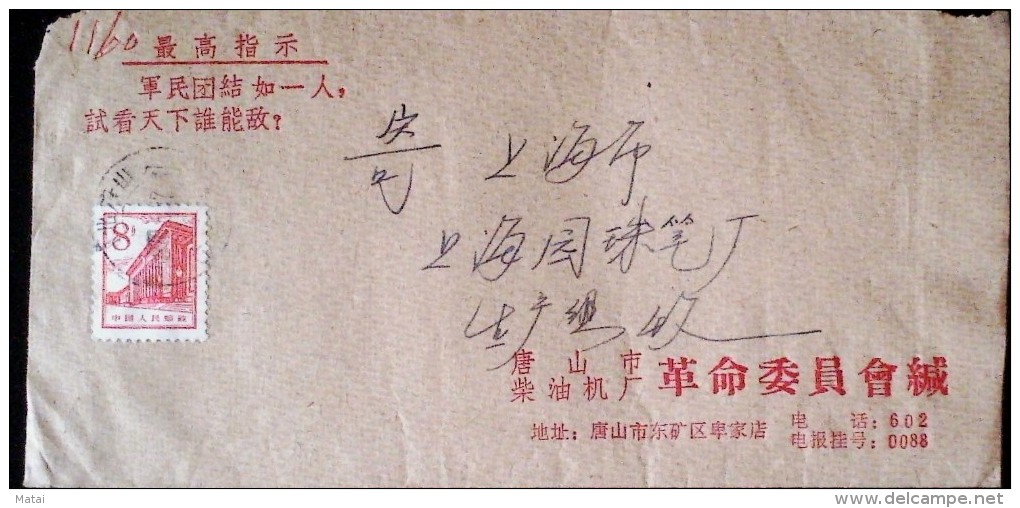 1160
最高指示
軍民団結如一人，
試看天下誰能敌？
寄 上海市
上海园珠笔厂
生产组 收
8
中国人民邮政
唐山市
柴油机厂
革命委員會緘
地址：唐山市东矿区卑家店
电 话：602
电报挂号：0088
Matai
delcampe.net